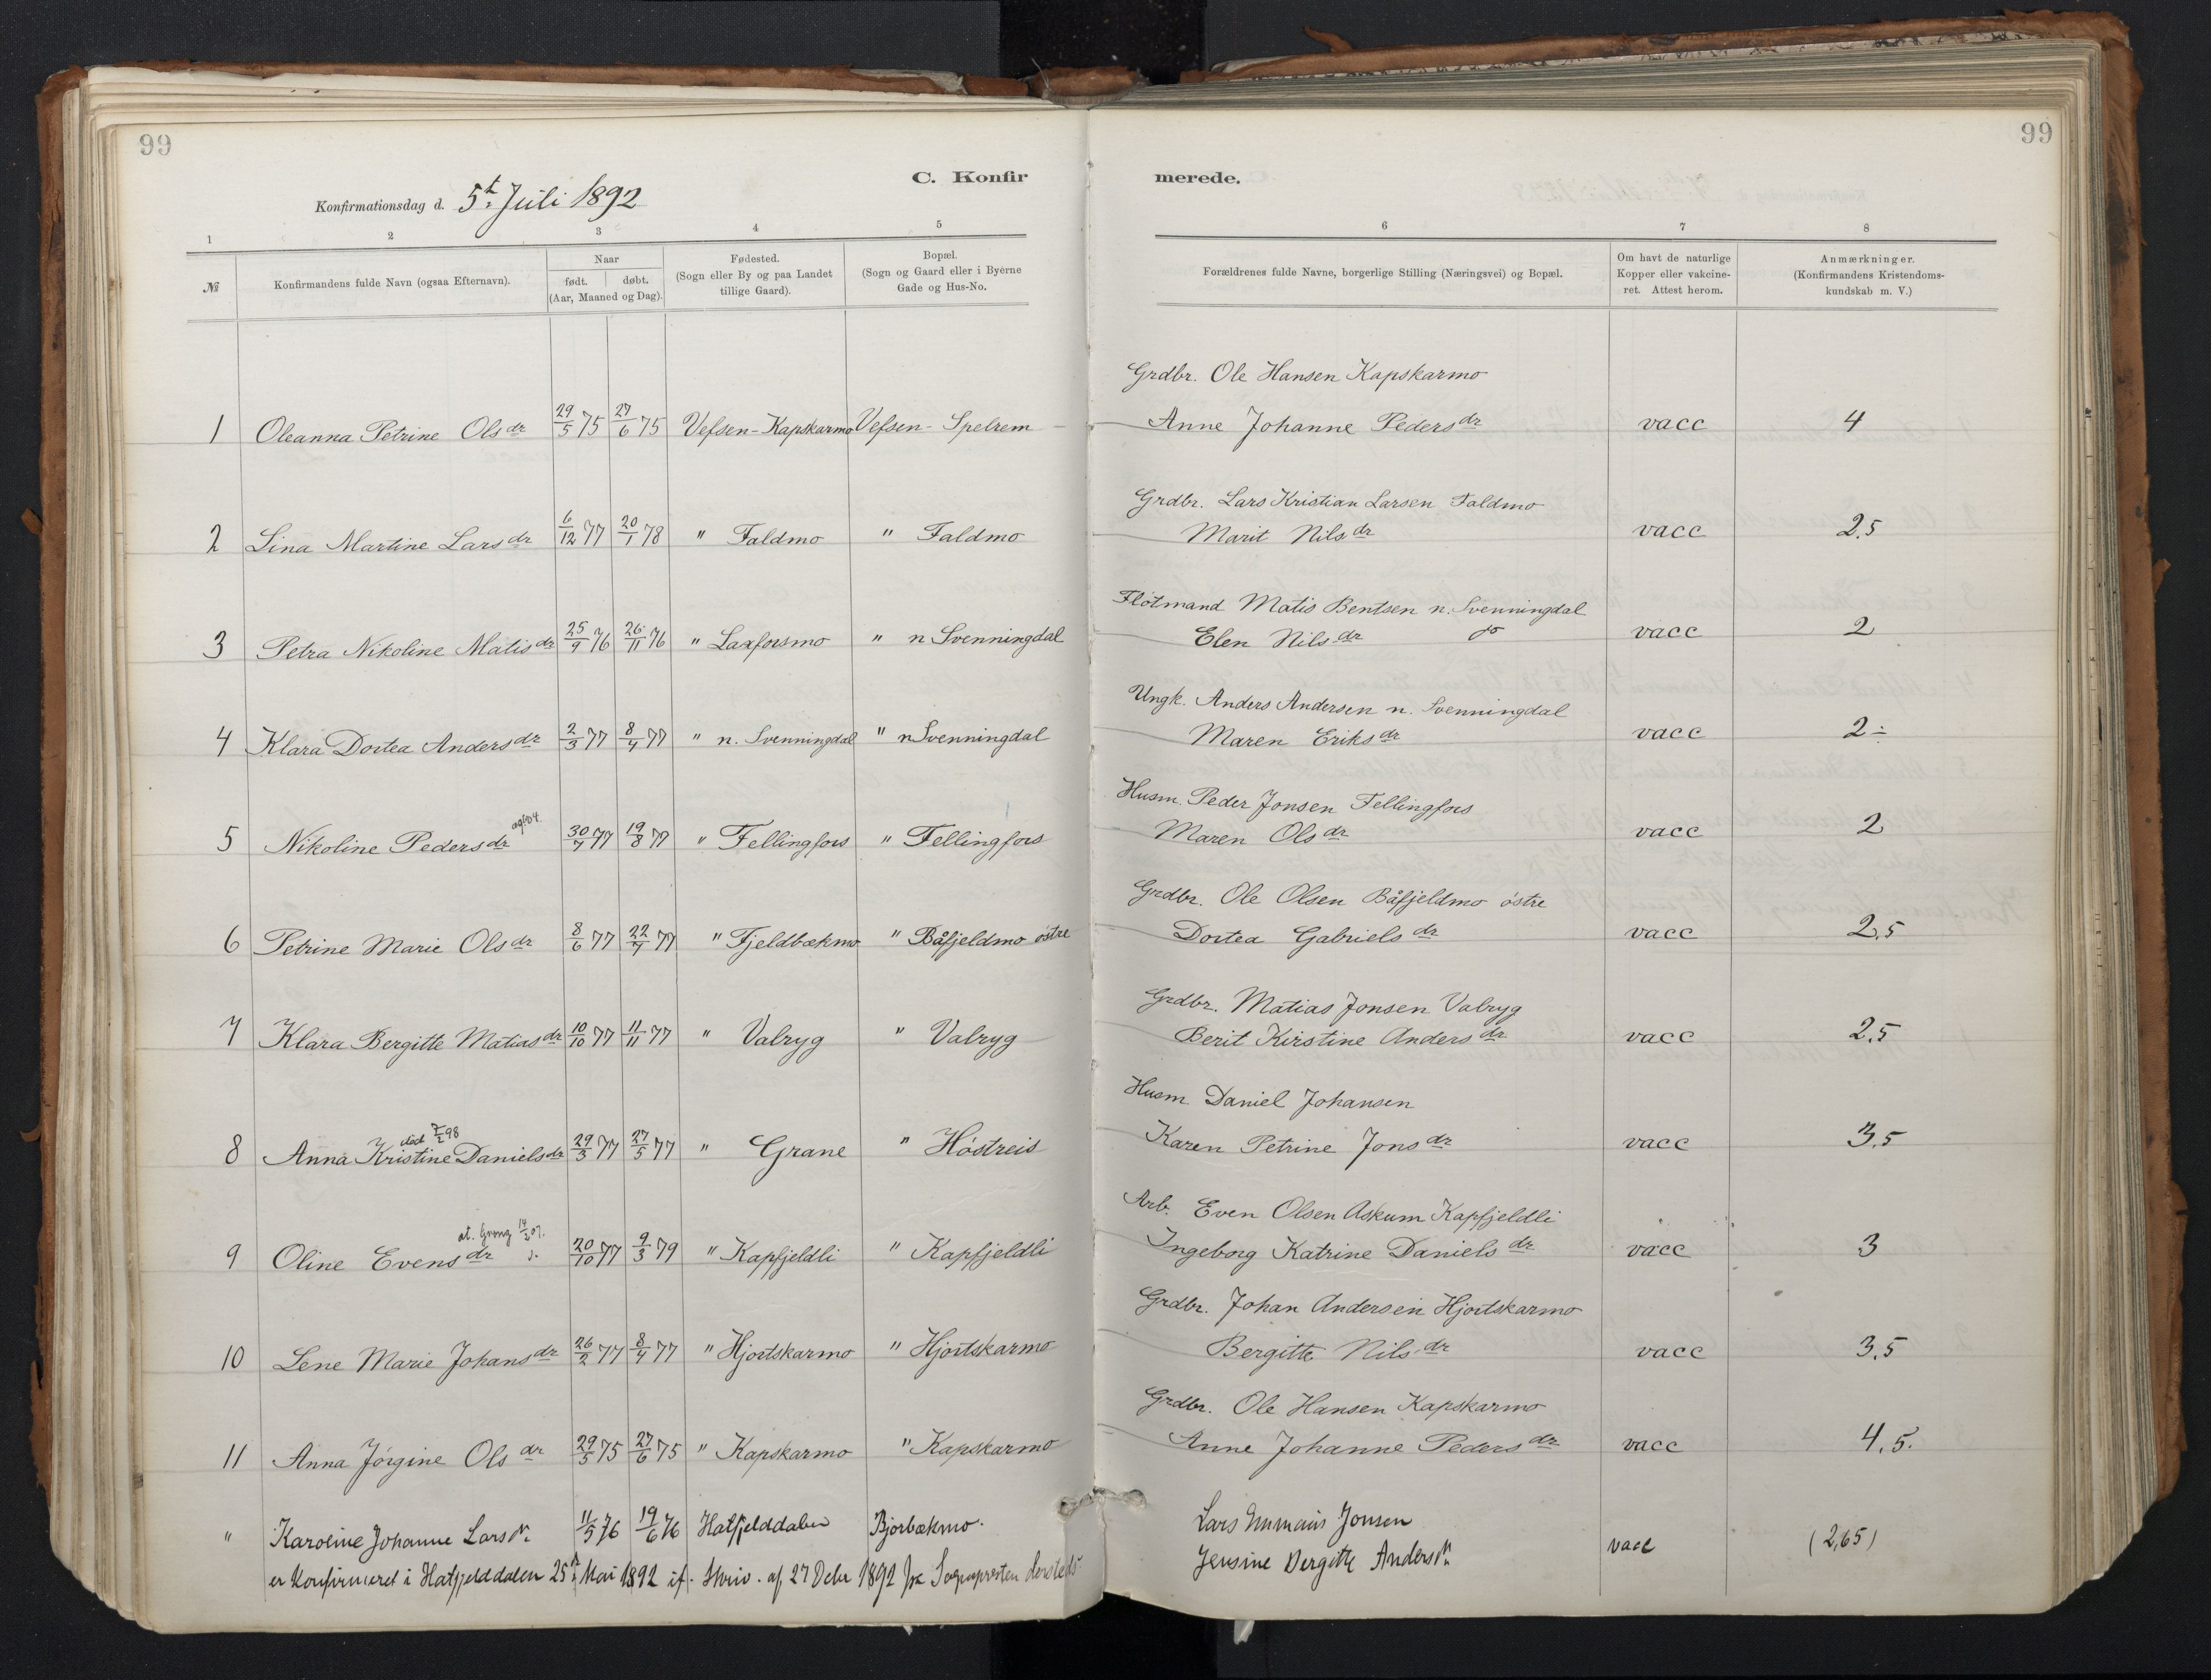 99
99
C. Konfir
merede.
Konfirmationsdag d. 5t. Juli 1892
1 2 3 4 5 6 7 8
№
Konfirmandens fulde Navn (ogsaa Efternavn).
Naar
født. døbt.
(Aar, Maaned og Dag).
Fødested.
(Sogn eller By og paa Landet
tillige Gaard).
Bopæl.
(Sogn og Gaard eller i Byerne
Gade og Hus-No.
Forældrenes fulde Navne, borgerlige Stilling (Næringsvei) og Bopæl.
Om havt de naturlige
Kopper eller vakcine-
ret. Attest herom.
Anmærkninger.
(Konfirmandens Kristendoms-
kundskab m. V.)
Grdbr. Ole Hansen Kapskarmo
1 Oleanna Petrine Olsdr 29/5 75 27/6 75 Vefsen-Kapskarmo Vefsen-Spelrem Anne Johanne Pedersdr vacc 4
Grdbr. Lars Kristian Larsen Faldmo
2 Lina Martine Larsdr 6/12 77 20/1 78 " Faldmo " Faldmo Marit Nilsdr vacc 2.5
Flötmand Matis Bentsen n. Svenningdal
3 Petra Nikoline Matisdr 25/9 76 26/11 76 " Laxforsmo " n Svenningdal Elen Nilsdr do vacc 2
Ungk. Anders Andersen n. Svenningdal
4 Klara Dortea Andersdr 2/3 77 8/4 77 " n. Svenningdal " n Svenningdal Maren Eriksdr vacc 2 ÷
Husm. Peder Jonsen Fellingfors
5 Nikoline Pedersdr 30/7 77 19/8 77 " Fellingfors " Fellingfors Maren Olsdr vacc 2
Grdbr. Ole Olsen Båfjeldmo östre
6 Petrine Marie Olsdr 8/6 77 22/7 77 " Fjeldbækmo " Båfjeldmo östre Dortea Gabrielsdr vacc 2.5
Grdbr. Matias Jonsen Valryg
7 Klara Bergitte Matiasdr 10/10 77 11/11 77 " Valryg " Valryg Berit Kirstine Andersdr vacc 2.5
Husm Daniel Johansen
död 7/2 98
8 Anna Kristine Danielsdr 29/3 77 27/5 77 " Grane " Höstreis Karen Petrine Jonsdr vacc 3.5
Arb. Even Olsen Askum Kapfjeldli
at. Grong
9 Oline Evensdr 20/10 77 9/3 79 " Kapfjeldli " Kapfjeldli Ingeborg Katrine Danielsdr vacc 3
Grdbr. Johan Andersen Hjortskarmo
10 Lene Marie Johansdr 26/2 77 8/4 77 " Hjortskarmo " Hjortskarmo Bergitte Nilsdr vacc 3.5
Grdbr. Ole Hansen Kapskarmo
11 Anna Jörgine Olsdr 29/5 75 27/6 75 " Kapskarmo " Kapskarmo Anne Johanne Pedersdr vacc 4.5.
Lars Jonsen
" Karoline Johanne Larsdr. 11/5 76 19/6 76 Hatfjelddalen Bjorbækmo. Jensine Bergitte Andersdr. vacc (2,65)
er konfirmeret i Hatfjelddalen 25 Mai 1892 if. Skriv. af 27 Debr 1892 fra Sognepresten